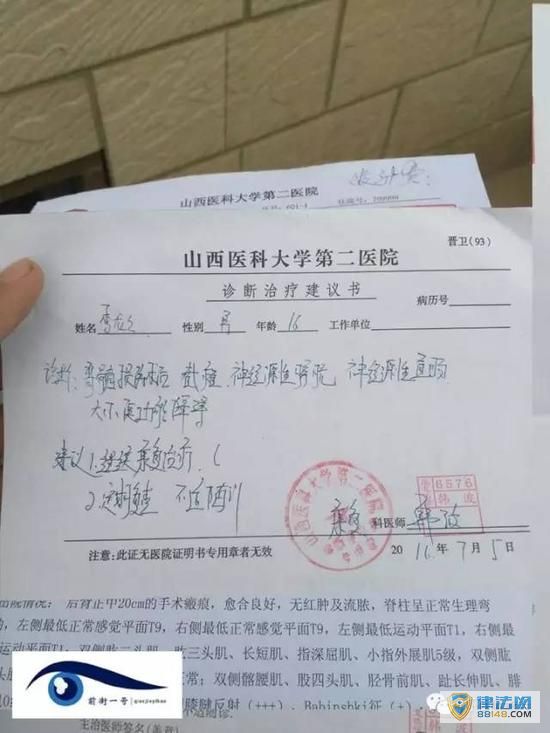 山西医科大学第二医院
晋卫(93)
山西医科大学第二医院
诊断治疗建议书
病历号
姓名 性别 男 年龄 16 工作单位
诊断: 脊髓损伤 截瘫 神经源性膀胱 神经源性直肠
大小便功能障碍
建议 1. 继续康复治疗
2. 定期复查
山西医科大学第二医院
6576
韩波
康复 科医师 韩波
注意:此证无医院证明书专用章者无效
2016年7月5日
出院情况: 后背正中20cm的手术瘢痕,愈合良好,无红肿及流脓,脊柱呈正常生理弯
,左侧最低正常感觉平面T9,右侧最低正常感觉平面T9,左侧最低运动平面T1,右侧最
运动平面T1,双侧肱二头肌、肱三头肌、长短肌、指深屈肌、小指外展肌5级,双侧肱
常;双侧髂腰肌、股四头肌、胫骨前肌、趾长伸肌、腓
膝腱反射(+++),Babinshki征(+)
主治医师签名(盖章)
前街一号
qianjieyihao
律法网
88148.com